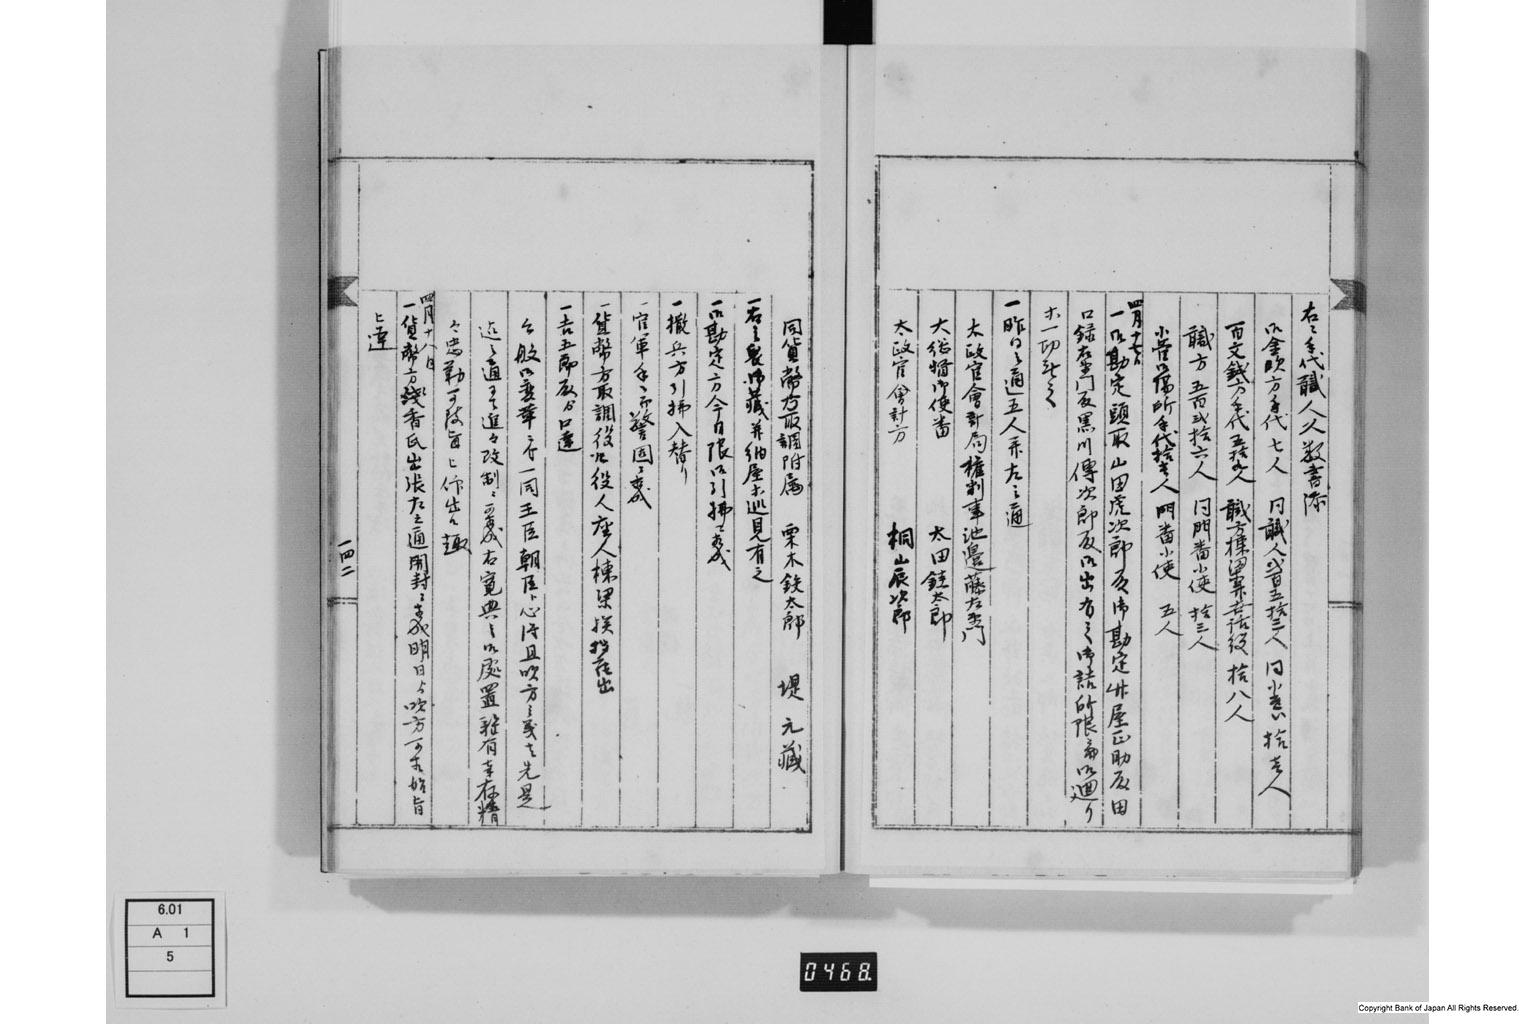 右之手代職人人数書添
御金吹方手代七人 同職人弐百五拾三人 同小遣い拾壱人
百文銭方手代五拾人 職方棟梁并世話役 拾八人
職方 五百弐拾六人 同門番小使 拾三人
小菅御場所手代拾壱人 門番小使 五人
四月十七日
一御勘定頭取山田虎次郎殿御勘定 屋正助殿田
口録左衛門殿黒川傳次郎殿御出有之御詰所限 御廻り
等一切無之
一昨日之通五人并左之通
太政官會計局權判事池邊藤左衛門
大総督御使番 太田銈太郎
太政官會計方 桐山辰次郎
同貨幣方取調附属 栗木鉄太郎 堤元藏
一右之製御藏并細屋等巡見有之
一御勘定方今日限御引拂之義
一撤兵方引拂入替り
官軍手ニ而警固之義
一貨幣方取調役御役人座人棟梁 罷出
一吉五郎殿分口達
今般御変革ニ付一同王臣朝臣心得且吹方之義も先是
迄之通 追々改制之義右寛典之御處置難有幸存精
々忠勤可致旨被仰出候趣
四月十八日
一貨幣方 香氏出張左之通開封之義明日より吹方可相始旨
被達
一四二
6.01
A 1
5
0468.
Copyright Bank of Japan All Rights Reserved.